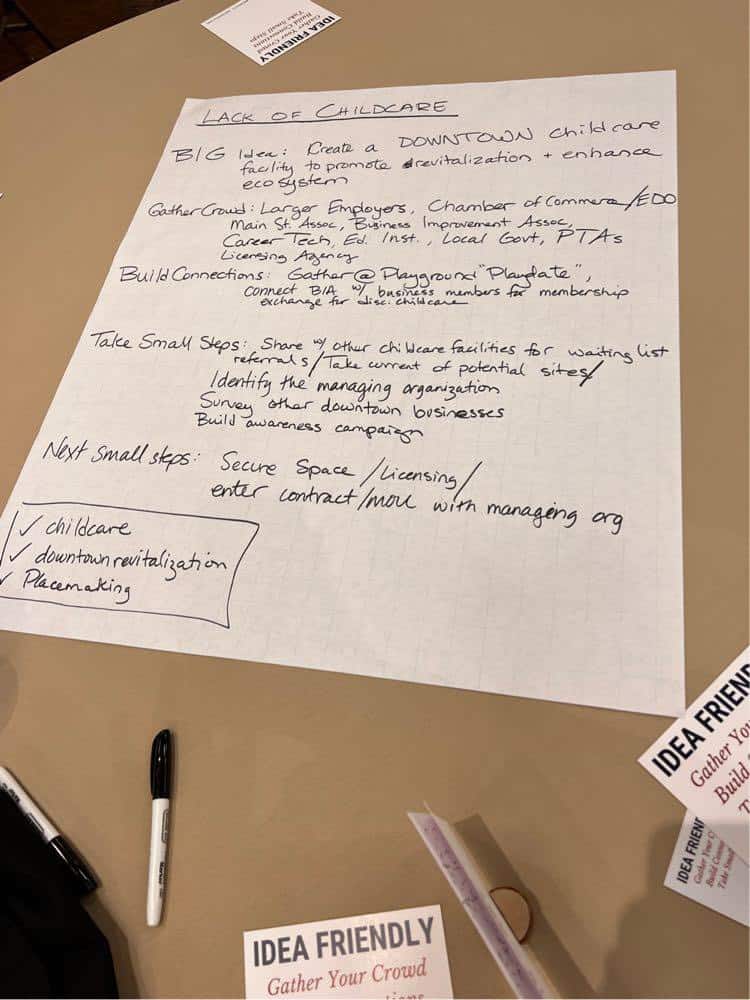 IDEA FRIENDLY
Gather Your Crowd
Build Connections
Take Small Steps
LACK OF CHILDCARE
BIG Idea: Create a DOWNTOWN childcare
facility to promote revitalization + enhance
ecosystem
Gather Crowd: Larger Employers, Chamber of Commerce/EDO
Main St. Assoc, Business Improvement Assoc,
Career Tech, Ed. Inst., Local Govt, PTAs
Licensing Agency
Build Connections: Gather @ Playground "Playdate",
connect BIA w/ business members for membership
exchange for disc. childcare
Take Small Steps: Share w/ other childcare facilities for waiting list
referrals/Take current of potential sites/
Identify the managing organization
Survey other downtown businesses
Build awareness campaign
Next small steps: Secure Space/Licensing/
enter contract/mou with managing org
✓ childcare
✓ downtown revitalization
✓ Placemaking
IDEA FRIEN
Gather You
Build
T
IDEA FRIEN
Gather Your C
Build Conne
Take Small
IDEA FRIENDLY
Gather Your Crowd